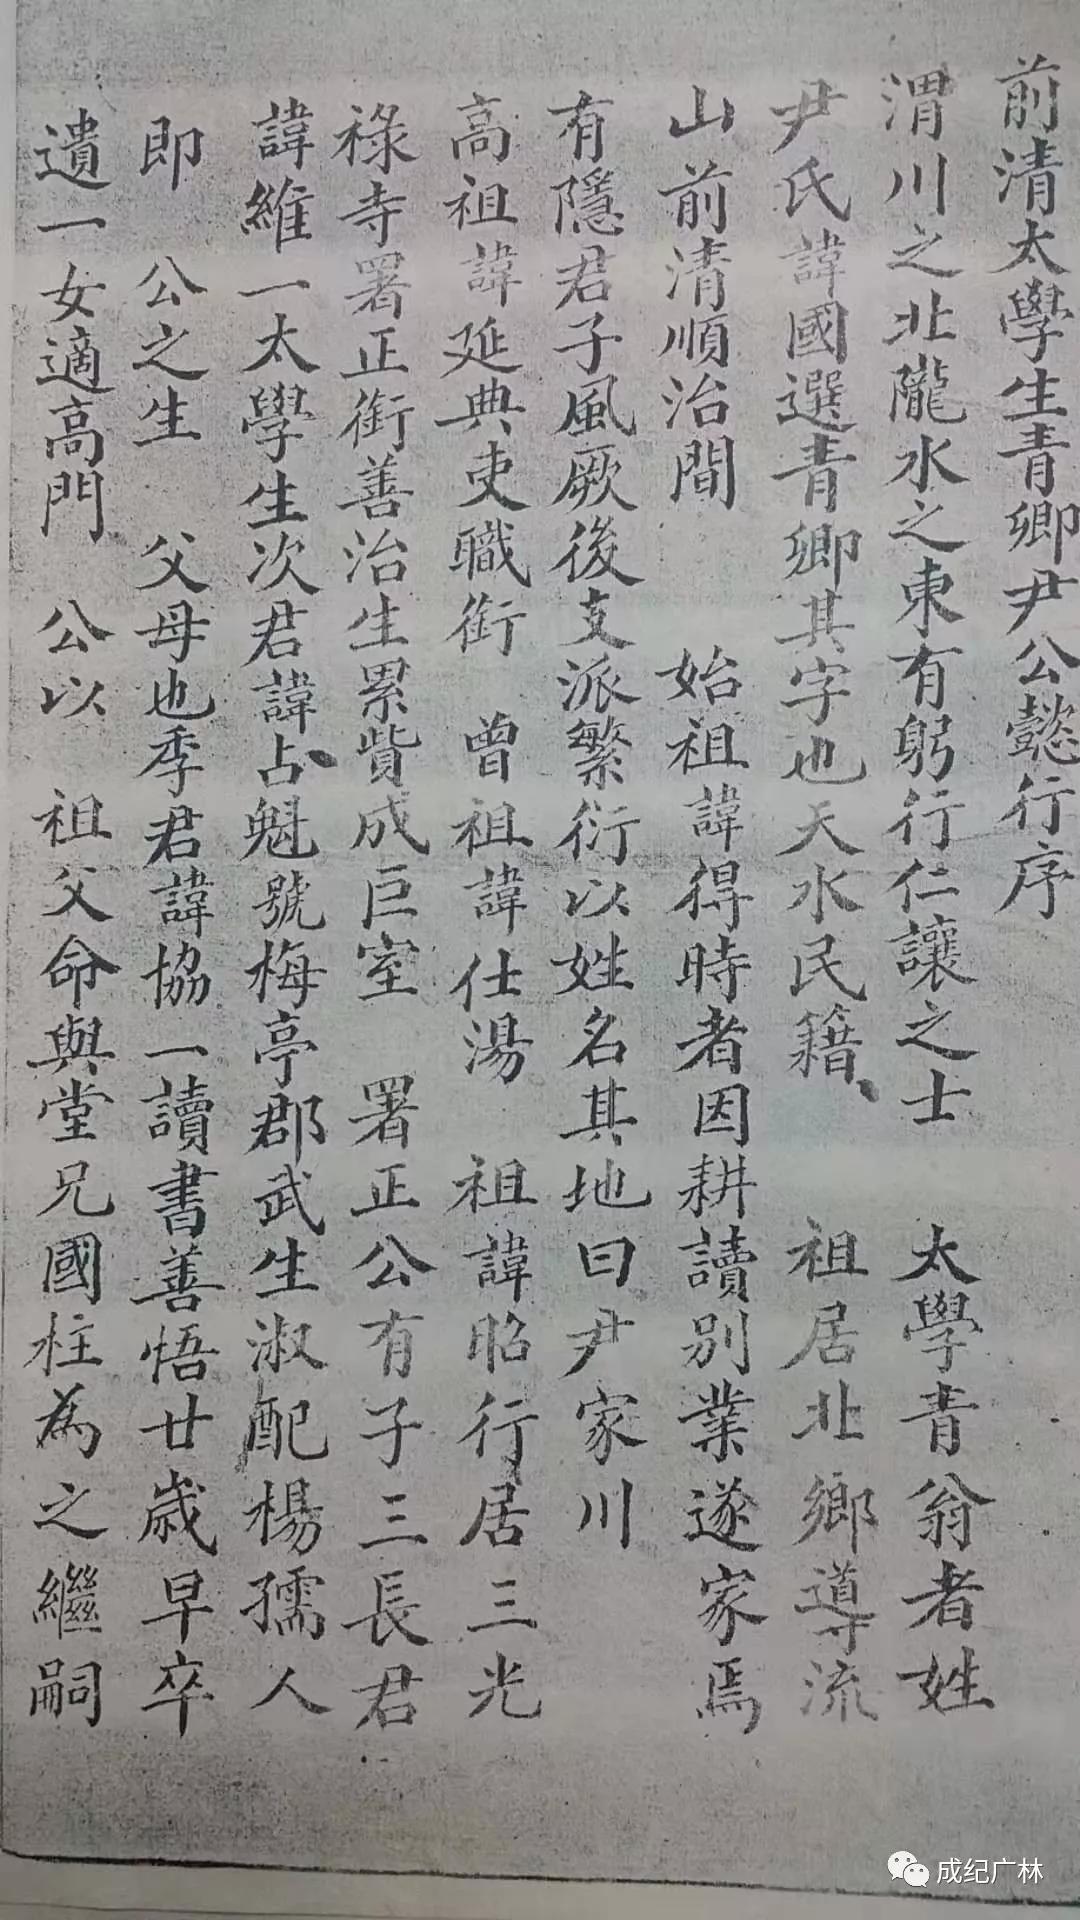 前清太學生青卿尹公懿行序
渭川之北隴水之東有躬行仁讓之士 太學青翁者姓
尹氏諱國選青卿其字也天水民籍、 祖居北鄉導流
山前清順治間 始祖諱得時者因耕讀別業遂家焉
有隱君子風厥後支派繁衍以姓名其地曰尹家川
高祖諱延典吏職銜 曾祖諱仕湯 祖諱昭行居三光
祿寺署正銜善治生累貲成巨室 署正公有子三長君
諱維一太學生次君諱占魁號梅亭郡武生淑配楊孺人
即 公之生 父母也季君諱協一讀書善悟廿歲早卒
遺一女適高門 公以 祖父命與堂兄國柱為之繼嗣
成纪广林